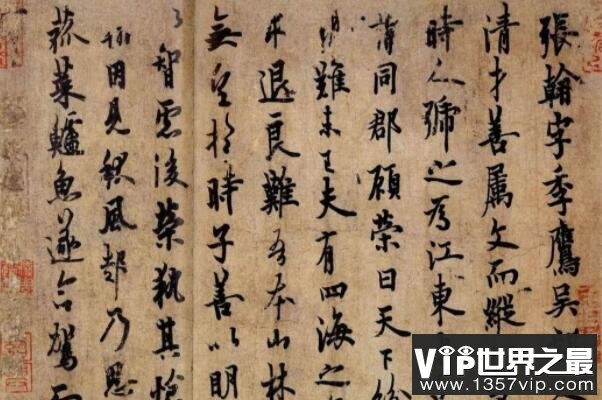 張翰字季鷹吳
清才善屬文而縱
時人號之為江東
謂同郡顧榮曰天下紛
難未已夫有四海之
求退良難吾本山林
無望於時子善以明
智慮後榮執其愴
翰因見秋風起乃思
菰菜鱸魚遂命駕而
VIP世界之最
www.1357vip.com